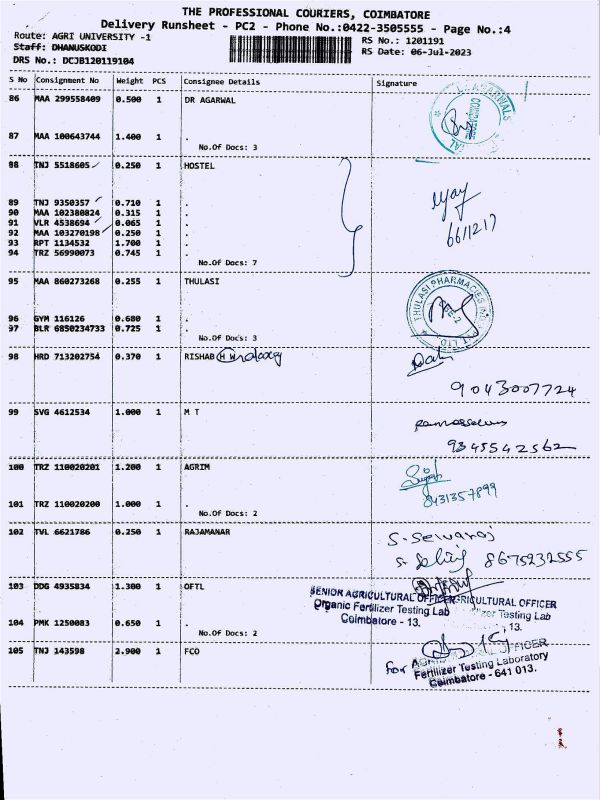 THE PROFESSIONAL COURIERS, COIMBATORE
Delivery Runsheet - PC2 - Phone No.:0422-3505555 - Page No.:4
Route: AGRI UNIVERSITY -1 RS No.: 1201191
Staff: DHANUSKODI RS Date: 06-Jul-2023
DRS No.: DCJB120119104
S No Consignment No Weight PCS Consignee Details Signature
86 MAA 299558409 0.500 1 DR AGARWAL
87 MAA 100643744 1.400 1 .
No.Of Docs: 3
88 TNJ 5518605 0.250 1 HOSTEL
89 TNJ 9350357 0.710 1 .
90 MAA 102380824 0.315 1 .
91 VLR 4538694 0.065 1 .
92 MAA 103270198 0.250 1 .
93 RPT 1134532 1.700 1 .
94 TRZ 56990073 0.745 1 .
No.Of Docs: 7
95 MAA 860273268 0.255 1 THULASI
THULASI PHARMACIES
96 GYM 116126 0.680 1 .
97 BLR 6850234733 0.725 1 .
No.Of Docs: 3
98 HRD 713202754 0.370 1 RISHAB H
9043007724
99 SVG 4612534 1.000 1 M T
9345542562
100 TRZ 110020201 1.200 1 AGRIM
8431357899
101 TRZ 110020200 1.000 1 .
No.Of Docs: 2
102 TVL 6621786 0.250 1 RAJAMANAR
S. Selvaraj
8675232555
103 DDG 4935834 1.300 1 OFTL
SENIOR AGRICULTURAL OFFICER
AGRICULTURAL OFFICER
Organic Fertilizer Testing Lab
Testing Lab
Coimbatore - 13.
13.
104 PMK 1250083 0.650 1 .
No.Of Docs: 2
105 TNJ 143598 2.900 1 FCO
For
OFFICER
Fertilizer Testing Laboratory
Coimbatore - 641 013.